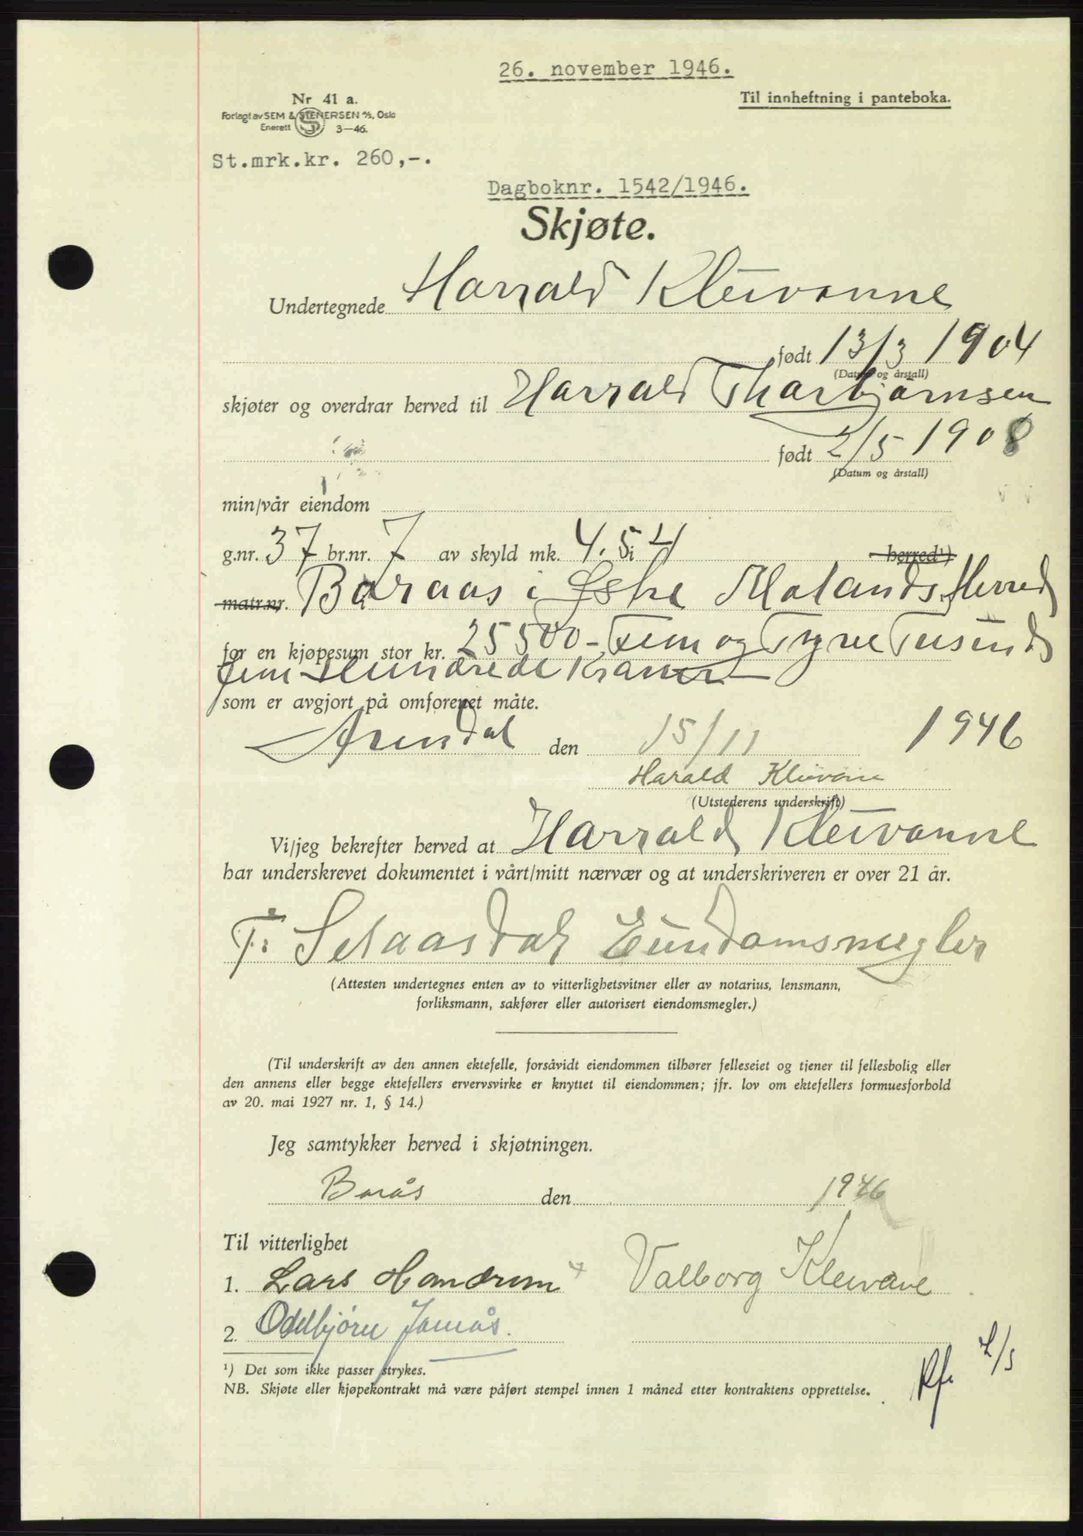 26. november 1946.
Nr 41 a.
Til innheftning i panteboka.
Forlagt av SEM & STENERSEN A/S, Oslo
Enerett 3—46.
St.mrk.kr. 260,-.
Dagboknr. 1542/1946.
Skjøte.
Undertegnede Harrald Kleivanne
født 13/3 1904
(Datum og årstall)
skjøter og overdrar herved til Harrald Tharbjørnsen
født 2/5 1908
(Datum og årstall)
min/vår eiendom
g.nr. 37 br.nr. 7 av skyld mk. 4.54 i herred¹)
matr.nr. Baraas i Østre Molands Herred
for en kjøpesum stor kr. 25500 - Fem og Tyve Tusinds
fem Hundrede Kroner
som er avgjort på omforenet måte.
Arendal den 15/11 1946
Harald Kleivane
(Utstederens underskrift)
Vi/jeg bekrefter herved at Harrald Kleivanne
har underskrevet dokumentet i vårt/mitt nærvær og at underskriveren er over 21 år.
T. Selaasdal Eiendomsmegler
(Attesten undertegnes enten av to vitterlighetsvitner eller av notarius, lensmann,
forliksmann, sakfører eller autorisert eiendomsmegler.)
(Til underskrift av den annen ektefelle, forsåvidt eiendommen tilhører felleseiet og tjener til fellesbolig eller
den annens eller begge ektefellers ervervsvirke er knyttet til eiendommen; jfr. lov om ektefellers formuesforhold
av 20. mai 1927 nr. 1, § 14.)
Jeg samtykker herved i skjøtningen.
Borås den 1946
Til vitterlighet
1. Lars Homdrom Valborg Kleivane
2. Oddbjørn
¹) Det som ikke passer strykes.
NB. Skjøte eller kjøpekontrakt må være påført stempel innen 1 måned etter kontraktens opprettelse.